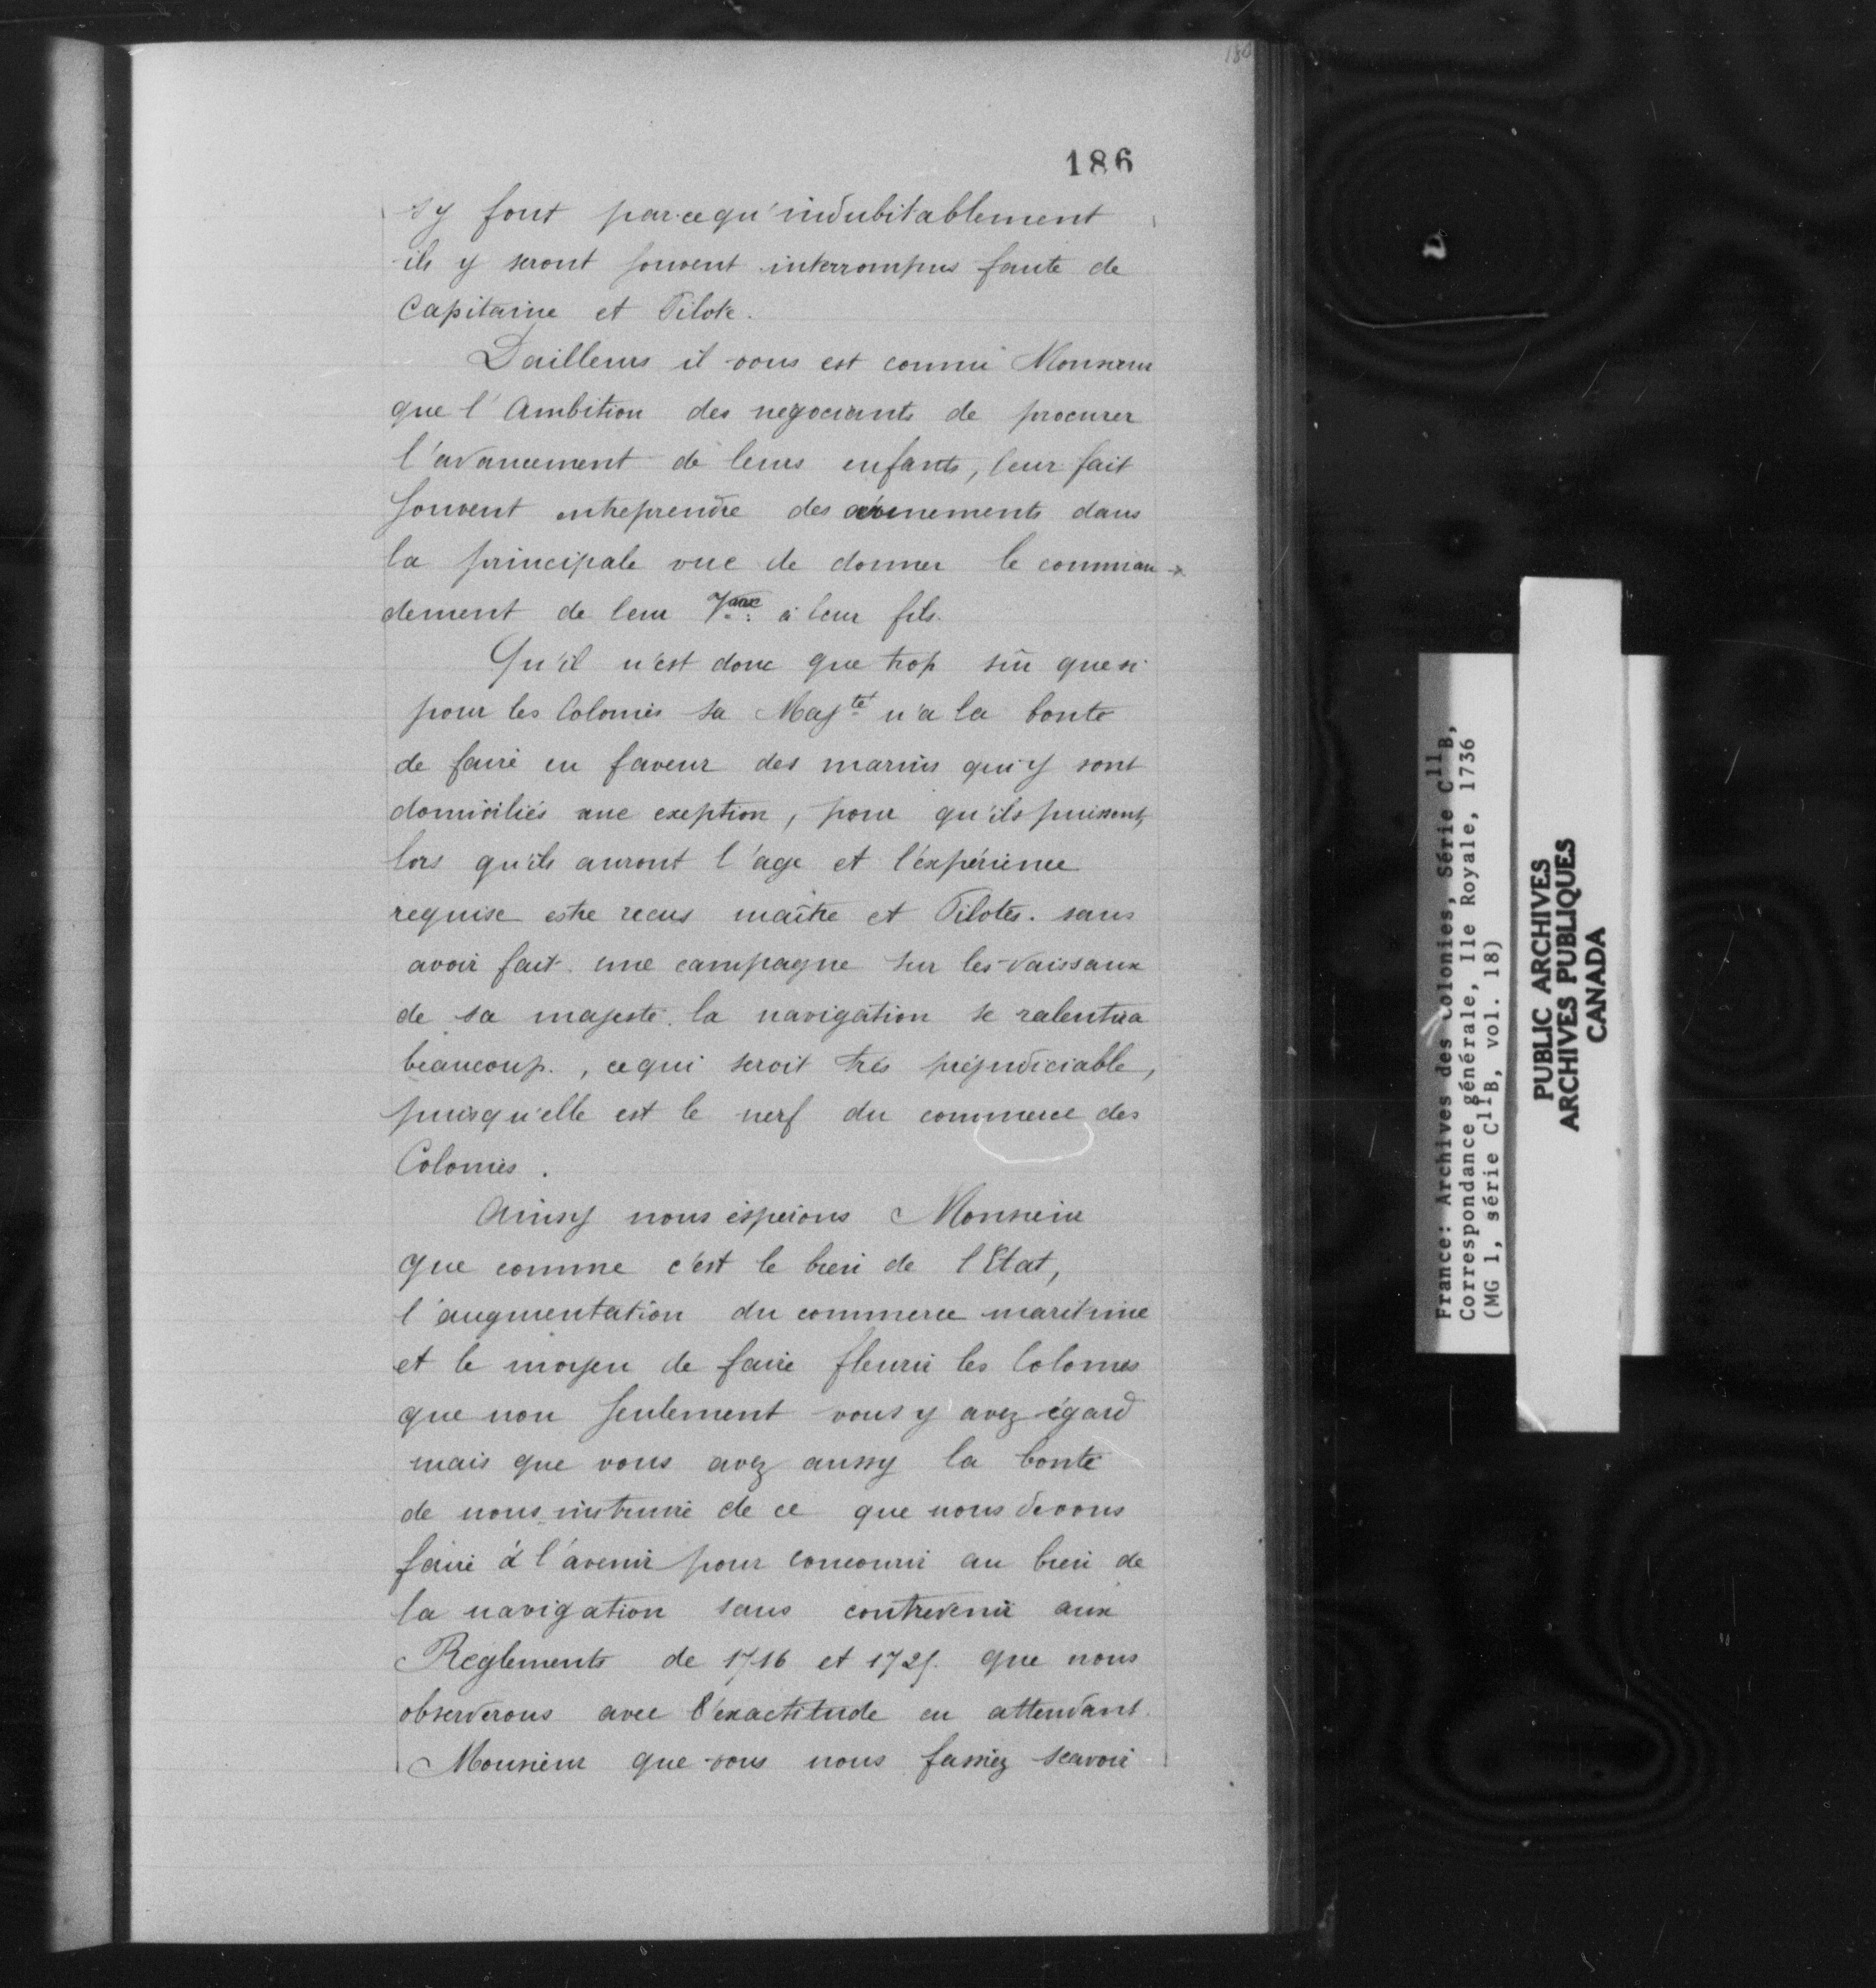 186
sy font parcequ'indubitablement
ils y seront souvent interrompus faute de
Capitaine et Pilote.
Dailleurs il vous est connu Monsieur
que l'Ambition des negociants de procurer
l'avancement de leurs enfants, leur fait
souvent entreprendre des armements dans
la principale vue de donner le comman-
dement de leur Vaux à leur fils.
Qu'il n'est donc que trop sûr que si
pour les Colonies Sa Majté n'a la bonté
de faire en faveur des marins qui y sont
domiciliés une exeption, pour qu'ils puissent,
lors qu'ils auront l'age et l'éxpérience
requise estre recus maître et Pilotes. sans
avoir fait une campagne sur les Vaissaux
de sa majesté. la navigation se ralentira
beaucoup., ce qui seroit très préjudiciable,
puisqu'elle est le nerf du commerce des
Colonies.
Ainsy nous espérons Monsieur
que comme c'est le bien de l'Etat,
l'augmentation du commerce maritime
et le moyen de faire fleurir les Colonies
que non seulement vous y avez égard
mais que vous avez aussy la bonté
de nous instruire de ce que nous devons
faire à l'avenir pour concourir au bien de
la navigation sans contrevenir aux
Reglements de 1716 et 1725. que nous
observerons avec l'éxactitude en attendant.
Monsieur que vous nous fassiez scavoir
France: Archives des Colonies, Série C11B,
Correspondance générale, Ile Royale, 1736
(MG 1, série C11B, vol. 18)
PUBLIC ARCHIVES
ARCHIVES PUBLIQUES
CANADA